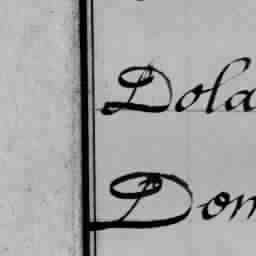 Dola
Dom